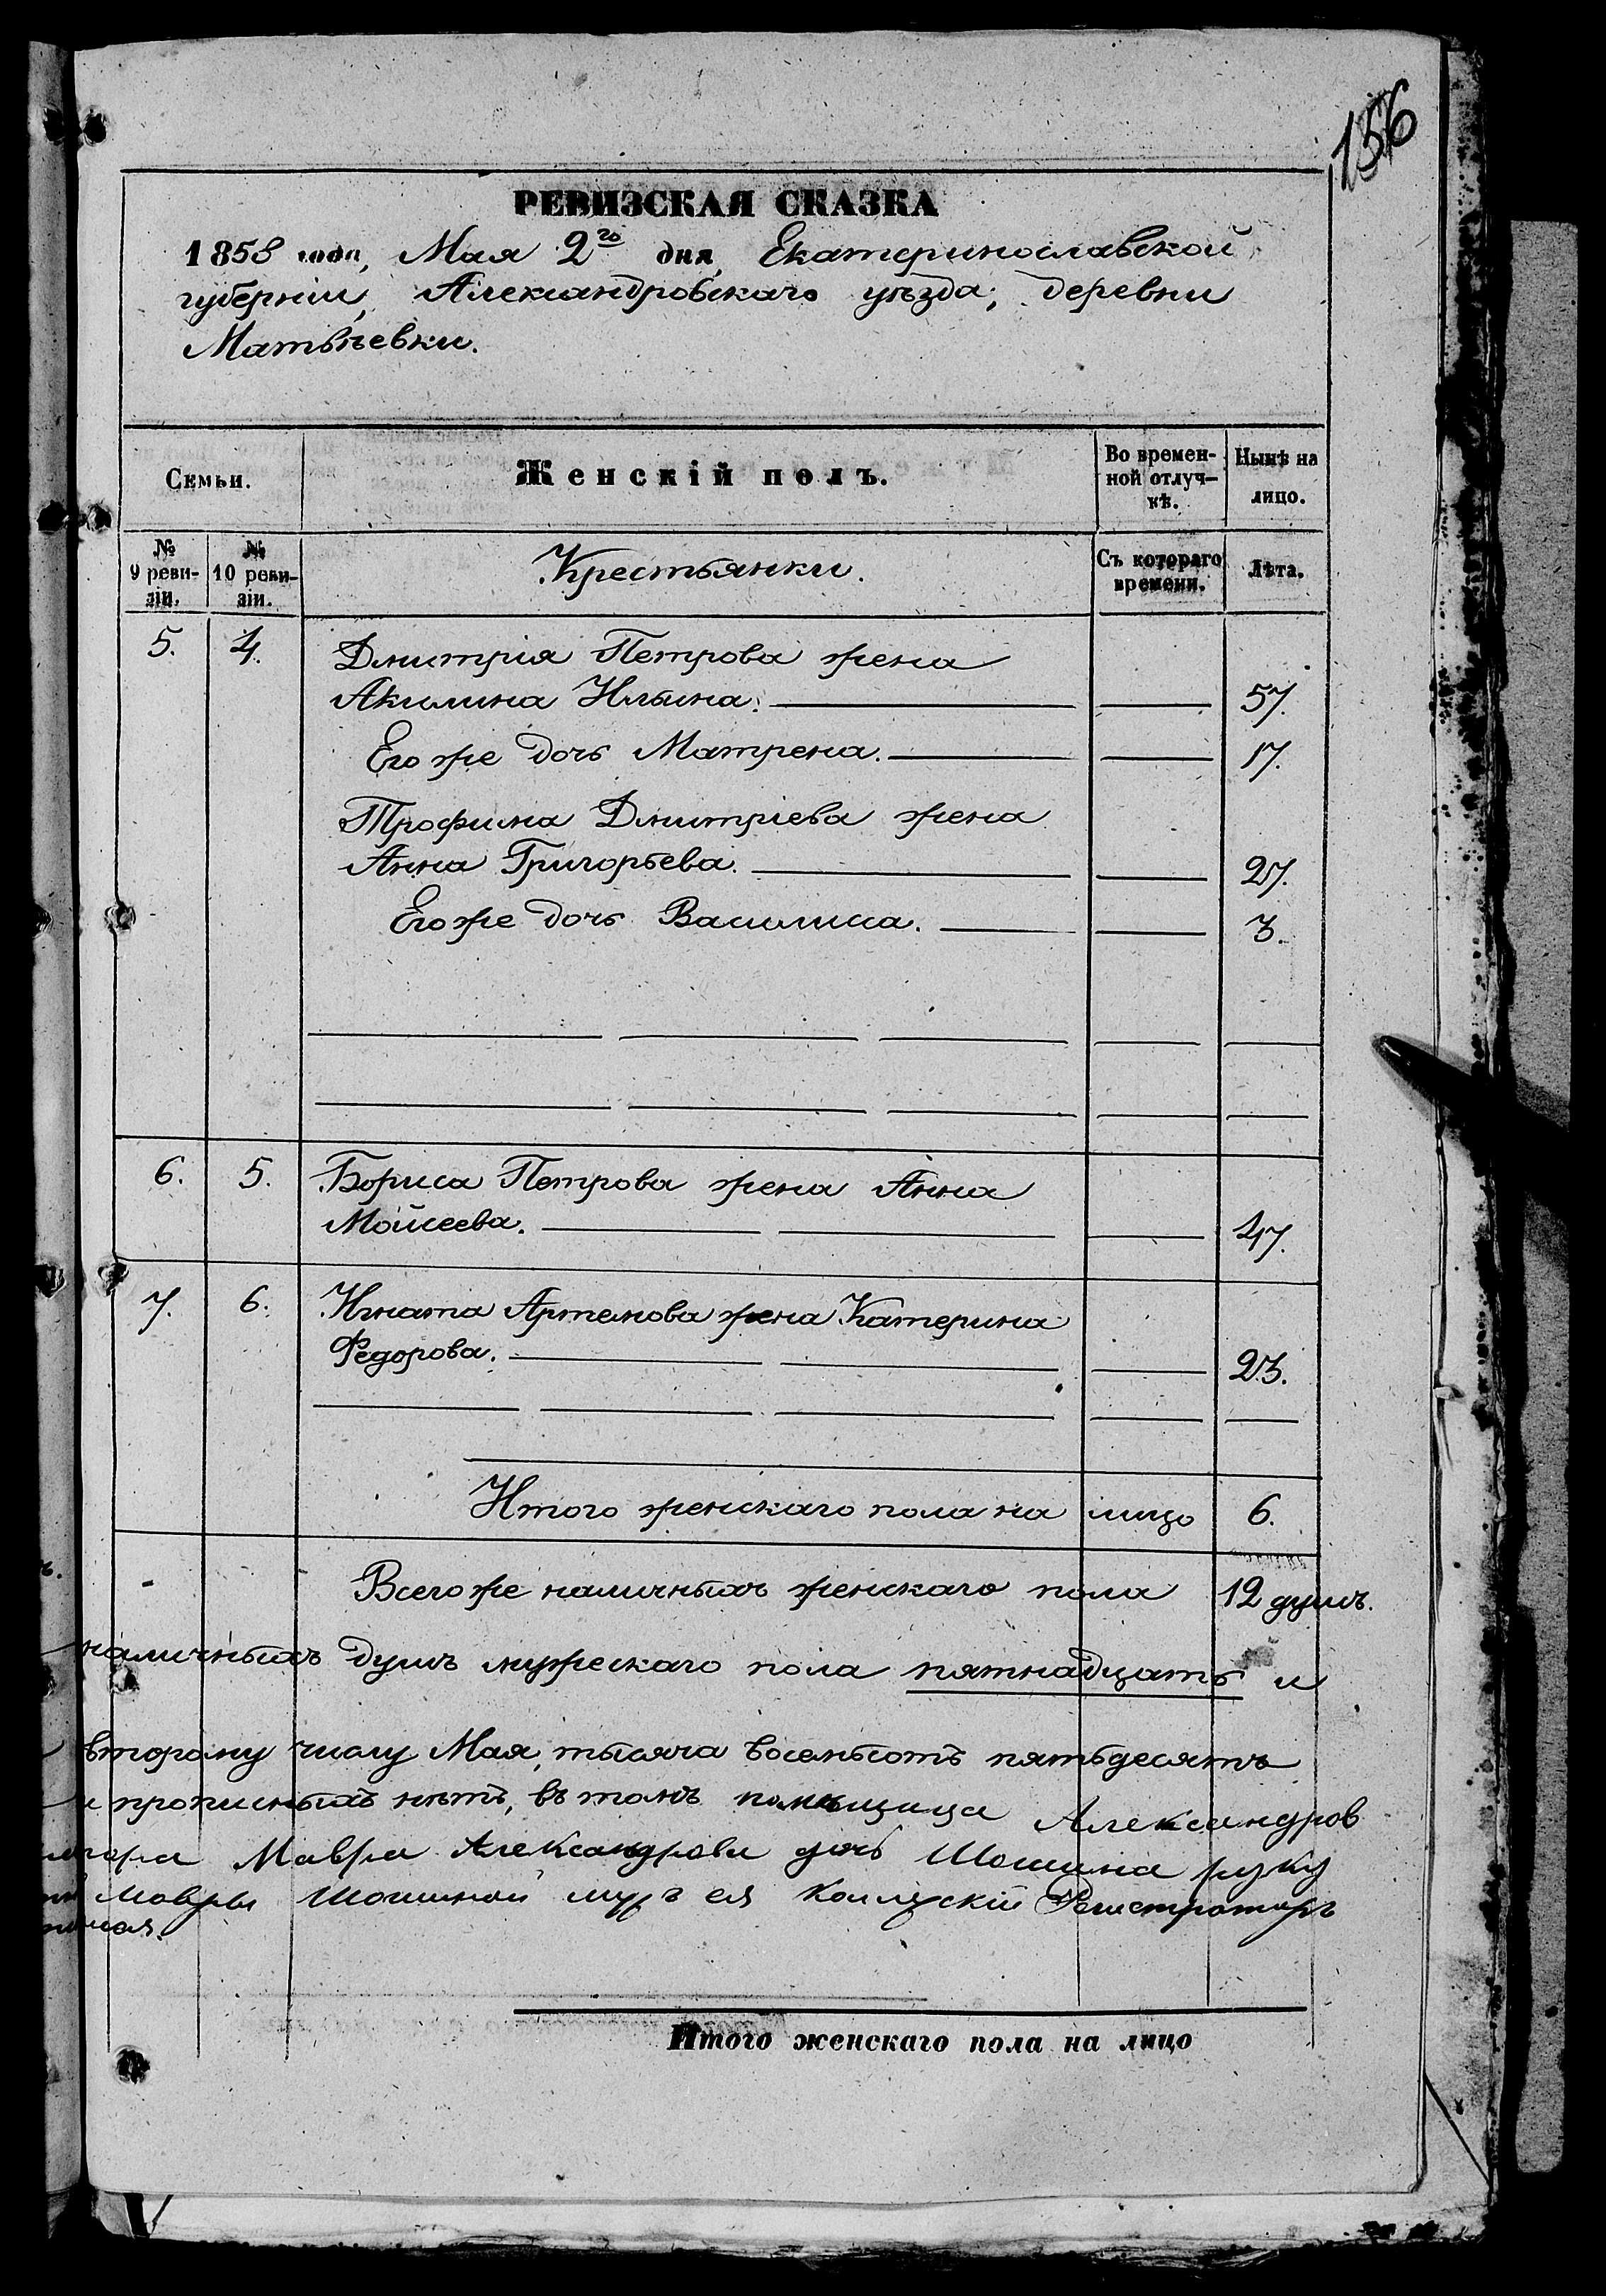 156
РЕВИЗСКАЯ СКАЗКА
1858 года, Мая 2го дня, Екатеринославской
губерніи, Александровскаго уѣзда, деревни
Матвѣевки.
Семьи.
Женскій полъ.
Во времен-
ной отлуч-
кѣ.
Нынѣ на
лицо.
№
9 реви-
зіи.
№
10 реви-
зіи.
Крестьянки.
Съ котораго
времени.
Лѣта.
5. 4. Дмитрія Петрова жена
Акилина Ильина. 57.
Его же дочь Матрена. 17.
Трофима Дмитріева жена
Анна Григорьева. 27.
Его же дочь Василиса. 3.
6. 5. Бориса Петрова жена Анна
Моисеева. 47.
7. 6. Игната Артемова жена Катерина
Федорова. 23.
Итого женскаго пола на лицо 6.
Всего же наличныхъ женскаго пола 12 душъ.
наличныхъ душъ мужескаго пола пятнадцать и
второму числу Мая, тысяча восемьсотъ пятьдесятъ
и прописныхъ нѣтъ, въ томъ помѣщица Александров
Мавра Александрова дочь Шошина руку
Мавры Шошиной мужъ ея Колежскій Регистраторъ
Итого женскаго пола на лицо